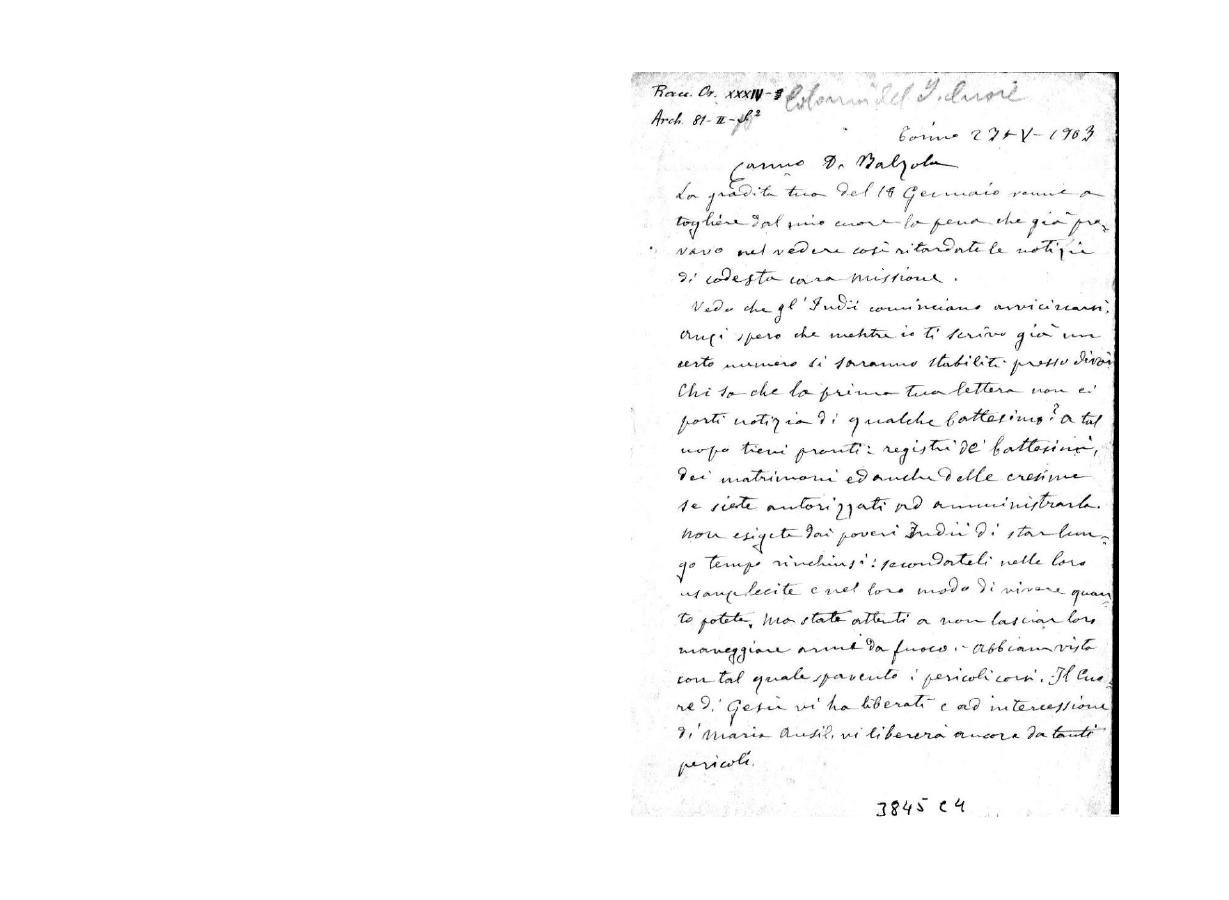 Racc. Or. XXXIV-
Colonia del S. Cuore
Arch. 81-II-
Torino 27-V-1903
Carissimo D. Balzola
La gradita tua del 18 Gennaio venne a
togliere dal mio cuore la pena che già pro-
vavo nel vedere così ritardate le notizie
di codesta cara missione.
Vedo che gl'Indii cominciano avvicinarsi,
anzi spero che mentre io ti scrivo già un
certo numero si saranno stabiliti presso di voi
Chi sa che la prima tua lettera non ci
porti notizia di qualche battesimo? A tal
uopo tieni pronti i registri de' battesimi,
dei matrimoni ed anche delle cresime
se siete autorizzati ad amministrarla.
Non esigete dai poveri Indii di star lun-
go tempo rinchiusi: secondateli nelle loro
usanze lecite e nel loro modo di vivere quan-
to potete, ma state attenti a non lasciar loro
maneggiare armi da fuoco. - Abbiam visto
con tal quale spavento i pericoli corsi. Il Cuo-
re di Gesù vi ha liberati e ad intercessione
di Maria Ausil. vi libererà ancora da tanti
pericoli.
3845 C4